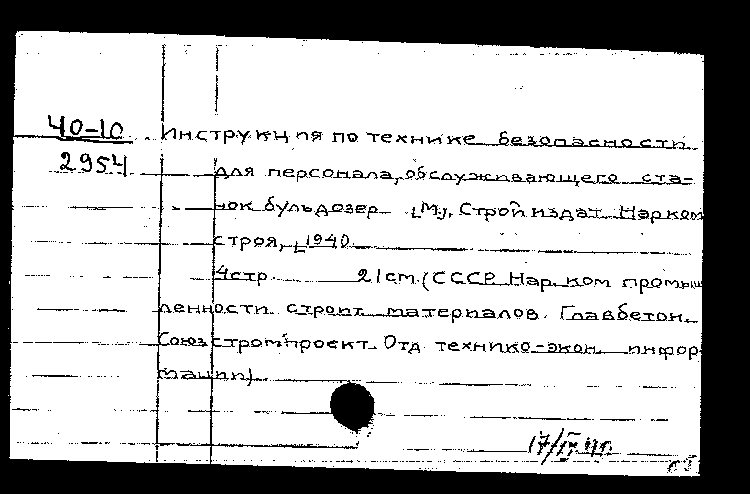 40-10
2954
Инструкция по технике безопасности
для персонала, обслуживающего ста-
нок бульдозер [М], Стройиздат Нарком
строя, [1940.
4 стр. 21 см. (СССР. Нар. ком промыш
ленности строит. материалов. Главбетон.
Союзстромпроект. Отд технико-экон. инфор
мации).
17/IV 40